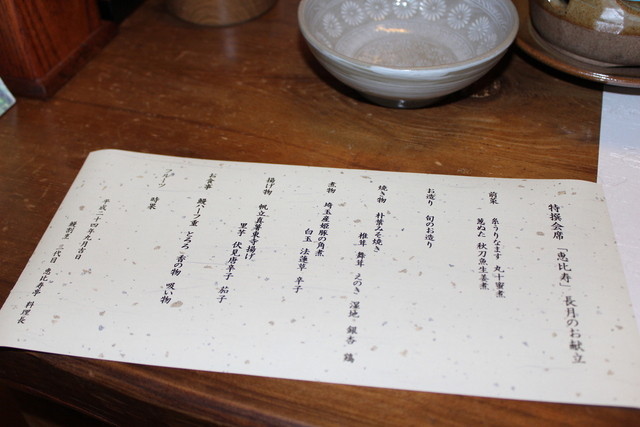 特撰会席 「恵比寿」 長月のお献立
前菜 糸うりなます 丸十蜜煮
葱ぬた 秋刀魚生姜煮
お造り 旬のお造り
焼き物 朴葉みそ焼き
椎茸 舞茸 えのき 湿地 銀杏 鶏
煮物 埼玉産姫豚の角煮
白玉 法蓮草 辛子
揚げ物 帆立真薯東寺揚げ
里芋 伏見唐辛子 茄子
お食事 鰻ハーフ重 とろろ 香の物 吸い物
フルーツ 時菜
平成二十四年九月吉日
三代目 恵比寿亭 料理長